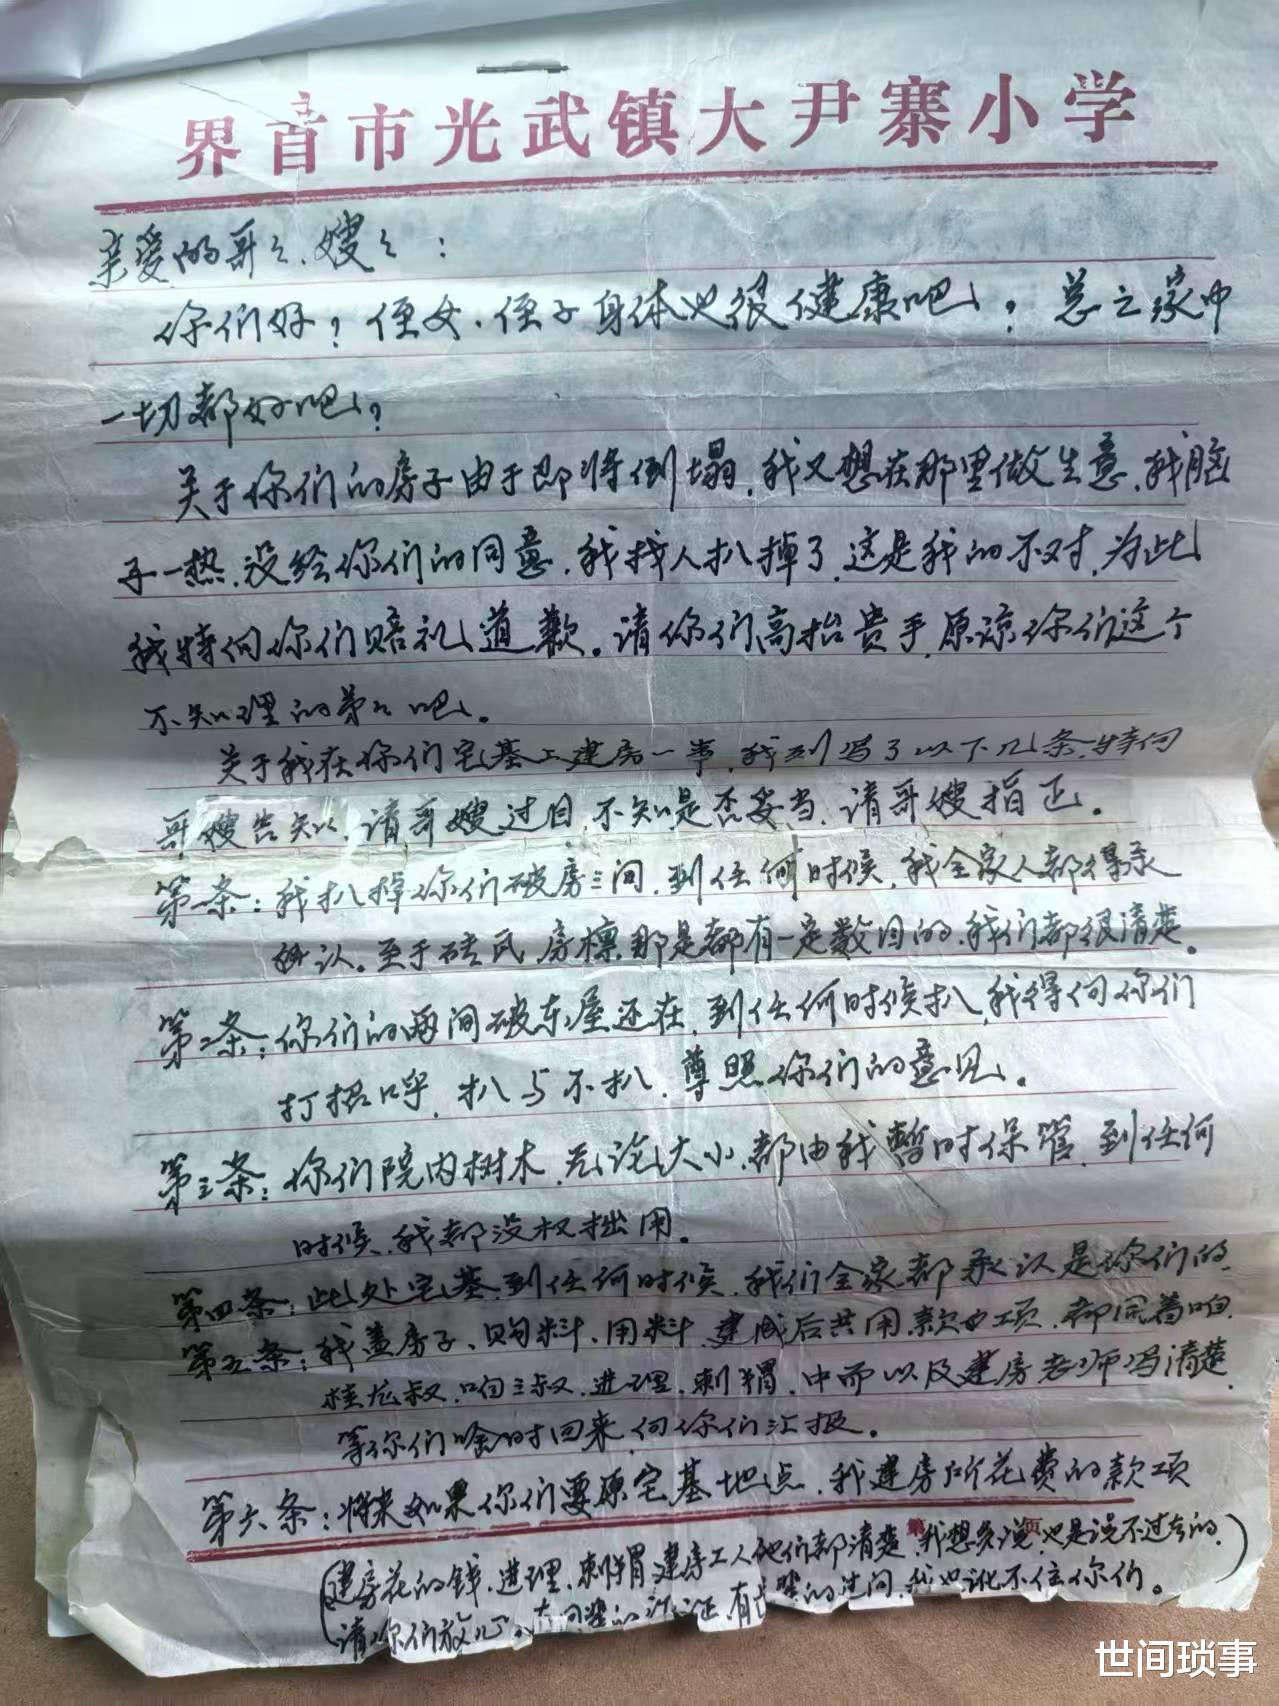 界首市光武镇大尹寨小学
亲爱的哥々、嫂々：
你们好？侄女、侄子身体也很健康吧？总之家中
一切都好吧？
关于你们的房子由于即将倒塌，我又想在那里做生意，我脑
子一热，没给你们的同意，我找人扒掉了，这是我的不对，为此
我特向你们赔礼道歉。请你们高抬贵手，原谅你们这个
不知理的弟々吧。
关于我在你们宅基上建房一事，我列写了以下几条，特向
哥嫂告知，请哥嫂过目，不知是否妥当，请哥嫂指正。
第一条：我扒掉你们破房三间，到任何时候，我全家人都得承
认。至于砖瓦，房檩那是都有一定数目的，我们都很清楚。
第二条：你们的两间破东屋还在，到任何时候扒，我得向你们
打招呼，扒与不扒，尊照你们的意见。
第三条：你们院内树木，无论大小，都由我暂时保管，到任何
时候，我都没权拙用。
第四条：此处宅基，到任何时候，我们全家都承认是你们的，
第五条：我盖房子、购料、用料，建成后共用款由项，都同着响
桂龙叔，响三叔，进理，刺猬，中而以及建房老师冯清楚，
等你们啥时回来，向你们汇报。
第六条：将来如果你们要原宅基地点，我建房所花费的款项
第 页
（建房花的钱，进理，刺猬，建房工人他们都清楚，我想多说，也是说不过去的，）
请你们放心，的认证，有的过问，我也讹不住你们。
世间琐事